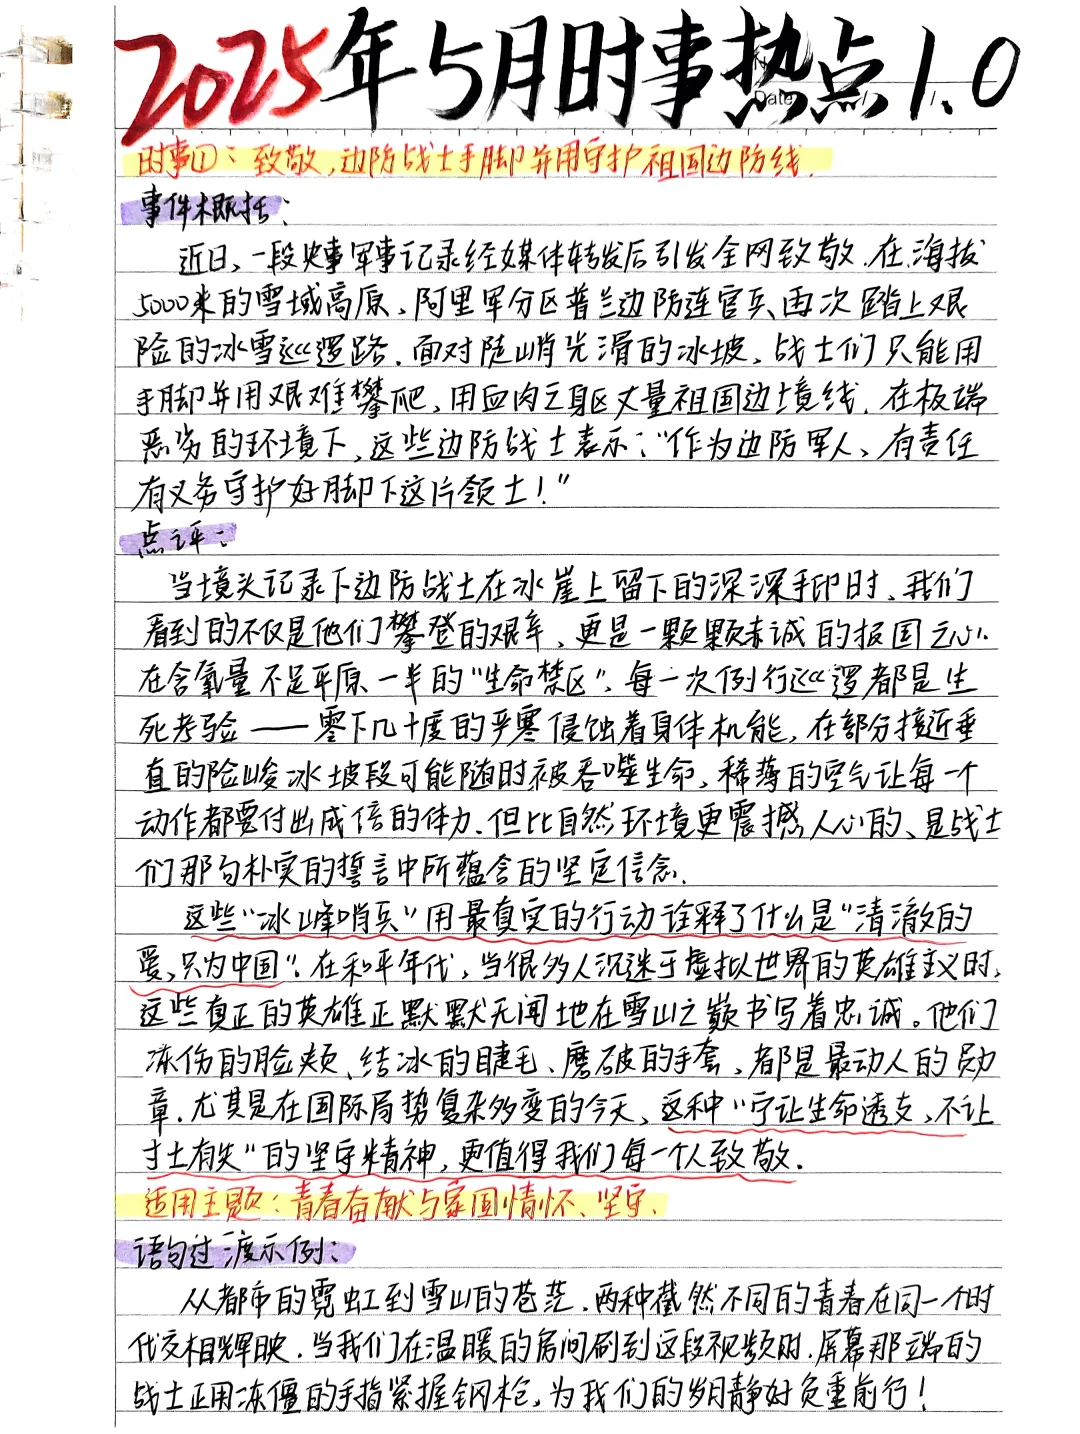 2025年5月时事热点1.0
Date
时事①：致敬，边防战士手脚并用守护祖国边防线.
事件概括：
近日、一段央事军事记录经媒体转发后引发全网致敬.在海拔
5000米的雪域高原、阿里军分区普兰边防连官兵再次踏上艰
险的冰雪巡逻路.面对陡峭光滑的冰坡、战士们只能用
手脚并用艰难攀爬，用血肉之身区丈量祖国边境线.在极端
恶劣的环境下，这些边防战士表示："作为边防军人、有责任
有义务守护好脚下这片领土！"
点评：
当境头记录下边防战士在冰崖上留下的深深手印时、我们
看到的不仅是他们攀登的艰辛、更是一颗颗赤诚的报国之心.
在含氧量不足平原一半的"生命禁区"，每一次例行巡逻都是生
死考验——零下几十度的严寒侵蚀着身体机能，在部分接近垂
直的险峻冰坡段可能随时被吞噬生命，稀薄的空气让每一个
动作都要付出成倍的体力.但比自然环境更震撼人心的、是战士
们那句朴实的誓言中所蕴含的坚定信念.
这些"冰峰哨兵"用最真实的行动诠释了什么是"清澈的
爱，只为中国".在和平年代，当很多人沉迷于虚拟世界的英雄主义时，
这些真正的英雄正默默无闻地在雪山之巅书写着忠诚。他们
冻伤的脸颊、结冰的睫毛、磨破的手套、都是最动人的勋
章.尤其是在国际局势复杂多变的今天、这种"宁让生命透支、不让
寸土有失"的坚守精神，更值得我们每一个人致敬.
适用主题：青春奋献与家国情怀、坚守.
语句过渡示例：
从都市的霓虹到雪山的苍茫.两种截然不同的青春在同一个时
代交相辉映.当我们在温暖的房间刷到这段视频时.屏幕那端的
战士正用冻僵的手指紧握钢枪，为我们的岁月静好负重前行！